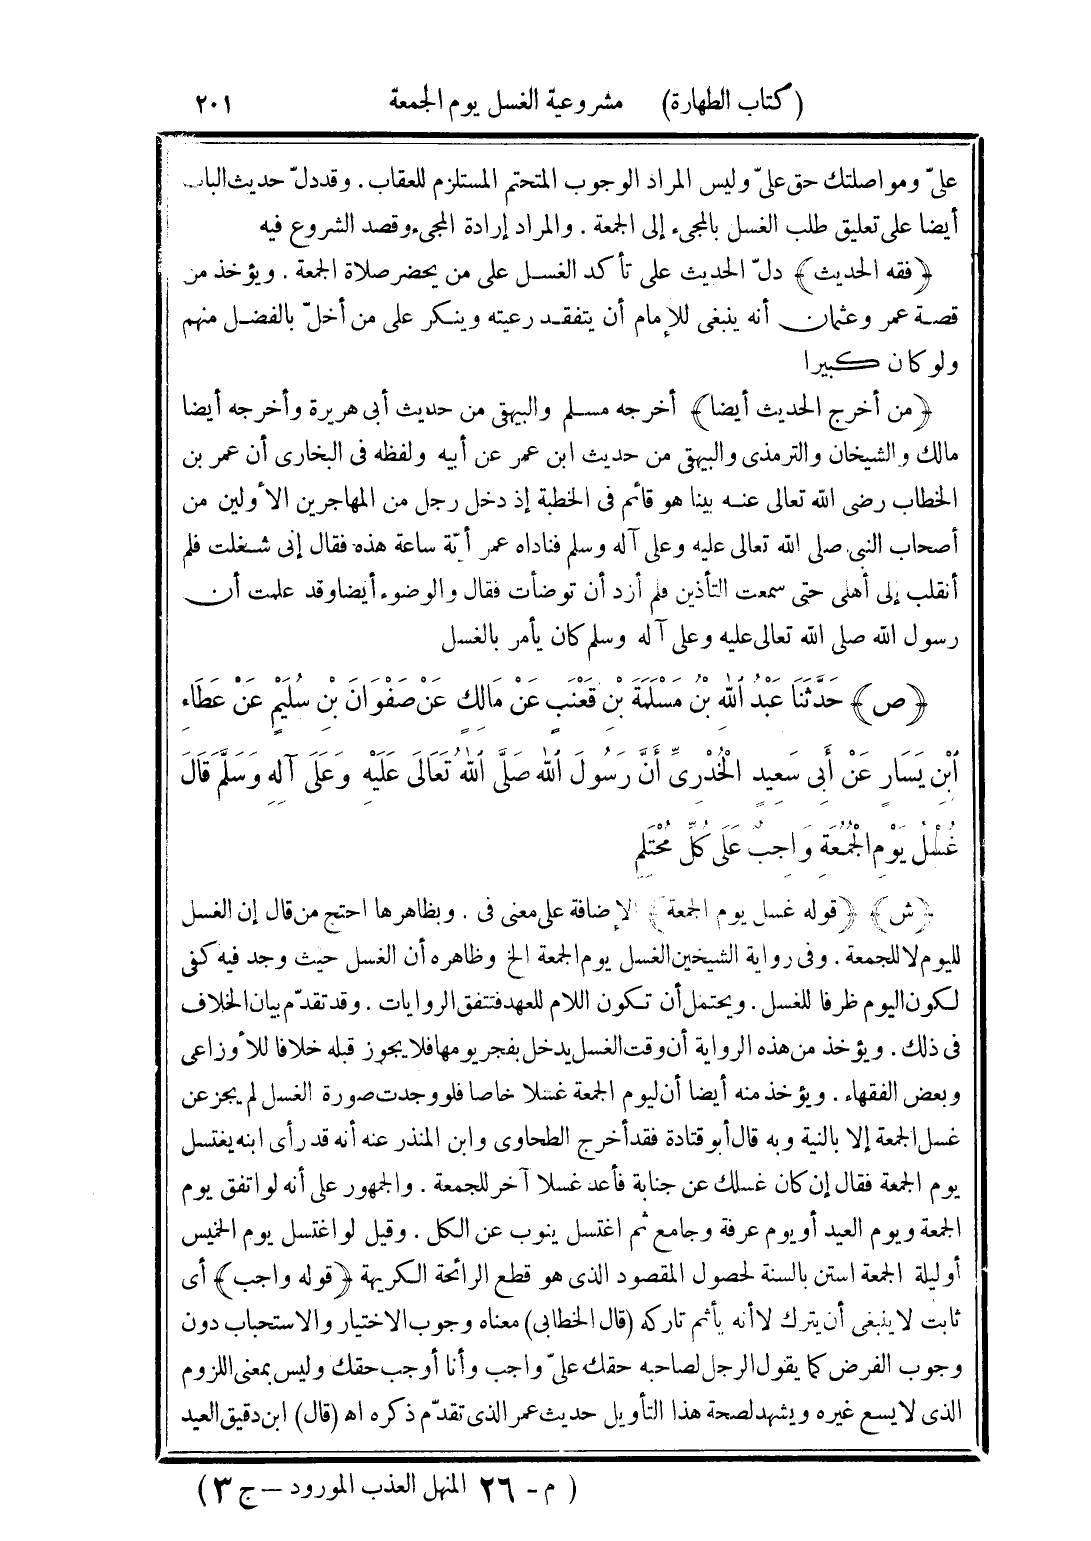 (كتاب الطهارة) مشروعية الغسل يوم الجمعة ٢٠١
علىّ ومواصلتك حق علىّ وليس المراد الوجوب المتحتم المستلزم للعقاب . وقد دلّ حديث الباب
أيضا على تعليق طلب الغسل بالمجىء إلى الجمعة . والمراد إرادة المجىء وقصد الشروع فيه
﴿فقه الحديث﴾ دلّ الحديث على تأكد الغسل على من يحضر صلاة الجمعة . ويؤخذ من
قصة عمر وعثمان أنه ينبغى للإمام أن يتفقد رعيته وينكر على من أخلّ بالفضل منهم
ولو كان كبيرا
﴿من أخرج الحديث أيضا﴾ أخرجه مسلم والبيهقى من حديث أبى هريرة وأخرجه أيضا
مالك والشيخان والترمذى والبيهقى من حديث ابن عمر عن أبيه ولفظه فى البخارى أن عمر بن
الخطاب رضى الله تعالى عنه بينا هو قائم فى الخطبة إذ دخل رجل من المهاجرين الأولين من
أصحاب النبى صلى الله تعالى عليه وعلى آله وسلم فناداه عمر أيّة ساعة هذه فقال إنى شغلت فلم
أنقلب إلى أهلى حتى سمعت التأذين فلم أزد أن توضأت فقال والوضوء أيضا وقد علمت أن
رسول الله صلى الله تعالى عليه وعلى آله وسلم كان يأمر بالغسل
﴿ص﴾ حَدَّثَنَا عَبْدُ اللهِ بْنُ مَسْلَمَةَ بْنِ قَعْنَبٍ عَنْ مَالِكٍ عَنْ صَفْوَانَ بْنِ سُلَيْمٍ عَنْ عَطَاءِ
ٱبْنِ يَسَارٍ عَنْ أَبِى سَعِيدٍ الْخُدْرِىِّ أَنَّ رَسُولَ اللهِ صَلَّى اللهُ تَعَالَى عَلَيْهِ وَعَلَى آلِهِ وَسَلَّمَ قَالَ
غُسْلُ يَوْمِ الْجُمُعَةِ وَاجِبٌ عَلَى كُلِّ مُحْتَلِمٍ
﴿ش﴾ ﴿قوله غسل يوم الجمعة﴾ الإضافة على معنى فى . وبظاهرها احتج من قال إن الغسل
لليوم لا للجمعة . وفى رواية الشيخين الغسل يوم الجمعة الخ وظاهره أن الغسل حيث وجد فيه كفى
لكون اليوم ظرفا للغسل . ويحتمل أن تكون اللام للعهد فتتفق الروايات . وقد تقدّم بيان الخلاف
فى ذلك . ويؤخذ من هذه الرواية أن وقت الغسل يدخل بفجر يومها فلا يجوز قبله خلافا للأوزاعى
وبعض الفقهاء . ويؤخذ منه أيضا أن ليوم الجمعة غسلا خاصا فلو وجدت صورة الغسل لم يجز عن
غسل الجمعة إلا بالنية وبه قال أبو قتادة فقد أخرج الطحاوى وابن المنذر عنه أنه قد رأى ابنه يغتسل
يوم الجمعة فقال إن كان غسلك عن جنابة فأعد غسلا آخر للجمعة . والجمهور على أنه لو اتفق يوم
الجمعة ويوم العيد أو يوم عرفة وجامع ثم اغتسل ينوب عن الكل . وقيل لو اغتسل يوم الخميس
أو ليلة الجمعة استن بالسنة لحصول المقصود الذى هو قطع الرائحة الكريهة ﴿قوله واجب﴾ أى
ثابت لا ينبغى أن يترك لا أنه يأثم تاركه (قال الخطابى) معناه وجوب الاختيار والاستحباب دون
وجوب الفرض كما يقول الرجل لصاحبه حقك علىّ واجب وأنا أوجب حقك وليس بمعنى اللزوم
الذى لا يسع غيره ويشهد لصحة هذا التأويل حديث عمر الذى تقدّم ذكره اه (قال) ابن دقيق العيد
( م - ٢٦ المنهل العذب المورود – ج ٣ )